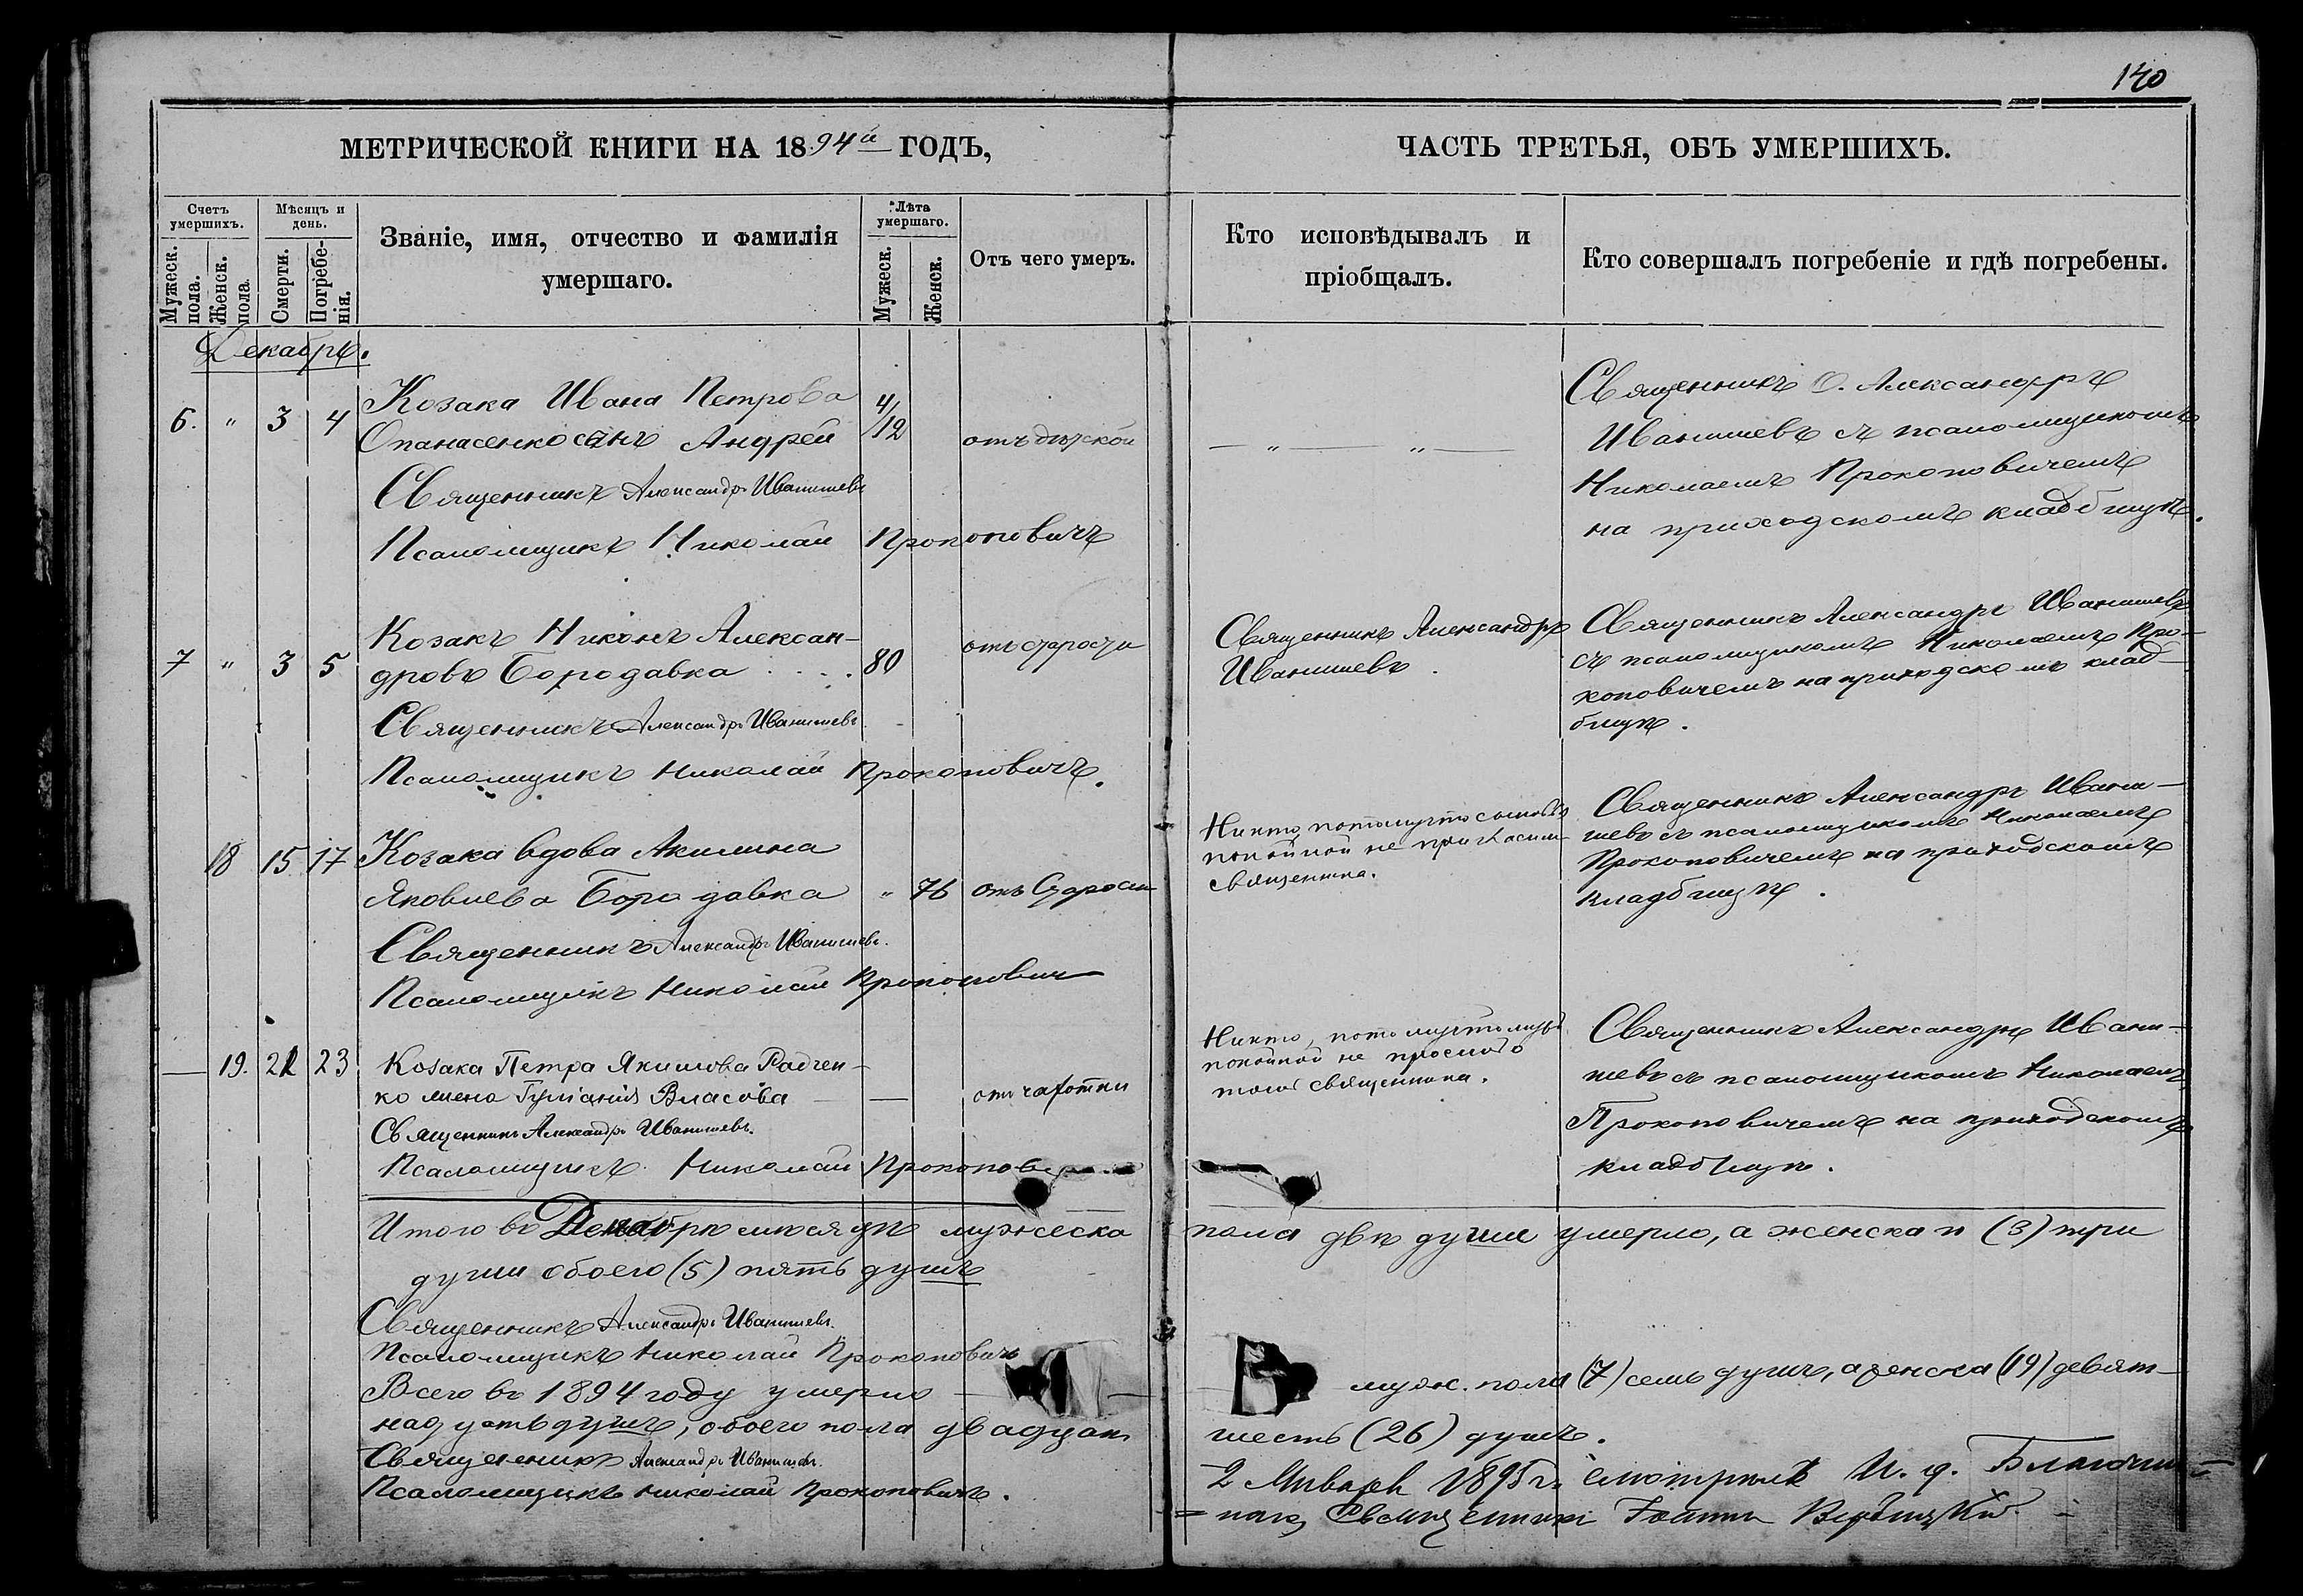 140
МЕТРИЧЕСКОЙ КНИГИ НА 1894й ГОДЪ,
ЧАСТЬ ТРЕТЬЯ, ОБЪ УМЕРШИХЪ.
Счетъ умершихъ.
Мужеск. пола.
Женск. пола
Мѣсяцъ и день.
Смерти.
Погребе-
нія.
Званіе, имя, отчество и фамилія
умершаго.
Лѣта умершаго.
Мужеск.
Женск.
Отъ чего умеръ.
Кто исповѣдывалъ и
пріобщалъ.
Кто совершалъ погребеніе и гдѣ погребены.
Декабрь.
6. " 3 4
Козака Ивана Петрова
Опанасенко сынъ Андрей
4/12
Священникъ Александръ Иванишевъ
Псаломщикъ Николай Прокоповичъ
— " — " —
Священникъ О. Александръ
Иванишевъ съ псаломщикомъ
Николаемъ Прокоповичемъ
на приходскомъ кладбищѣ.
7 " 3 5
Козакъ Никонъ Алексан-
дровъ Бородавка
80
отъ старости
Священникъ Александръ Иванишевъ
Псаломщикъ Николай Прокоповичъ.
Священникъ Александръ
Иванишевъ.
Священникъ Александръ Иванишевъ
съ псаломщикомъ Николаемъ Про-
коповичемъ на приходскомъ клад-
бищѣ.
18 15 17
Козака вдова Акилина
Яковлева Бородавка
" 76 отъ Старости
Священникъ Александръ Иванишевъ.
Псаломщикъ Николай Прокопович
Никто, потому что
покойной не пригласили
священника.
Священникъ Александръ Ивани-
шевъ съ псаломщикомъ Николаемъ
Прокоповичемъ на приходскомъ
кладбищѣ.
— 19. 21 23
Козака Петра Якимова Радчен-
ко жена Гуліанія Власова
—
отъ чахотки
Священникъ Александръ Иванишевъ.
Псаломщикъ Николай Прокопов
Никто, потому что мужъ
покойной не просилъ
священника.
Священникъ Александръ Ивани-
шевъ съ псаломщикомъ Николаемъ
Прокоповичемъ на приходскомъ
кладбищѣ.
Итого въ Декабрѣ мѣсяцѣ мужеска пола двѣ души умерло, а женска п (3) три
души обоего (5) пять душъ
Священникъ Александръ Иванишевъ.
Псаломщикъ Николай Прокоповичъ
Всего въ 1894 году умерло — муж. пола (7) семь душъ, а женска (19) девят-
надцать душъ, обоего пола двадцать шесть (26) душъ.
Священникъ Александръ Иванишевъ.
Псаломщикъ Николай Прокоповичъ.
2 Января 1895 г. смотрѣлъ И. д. Благочин-
наго, Священникъ